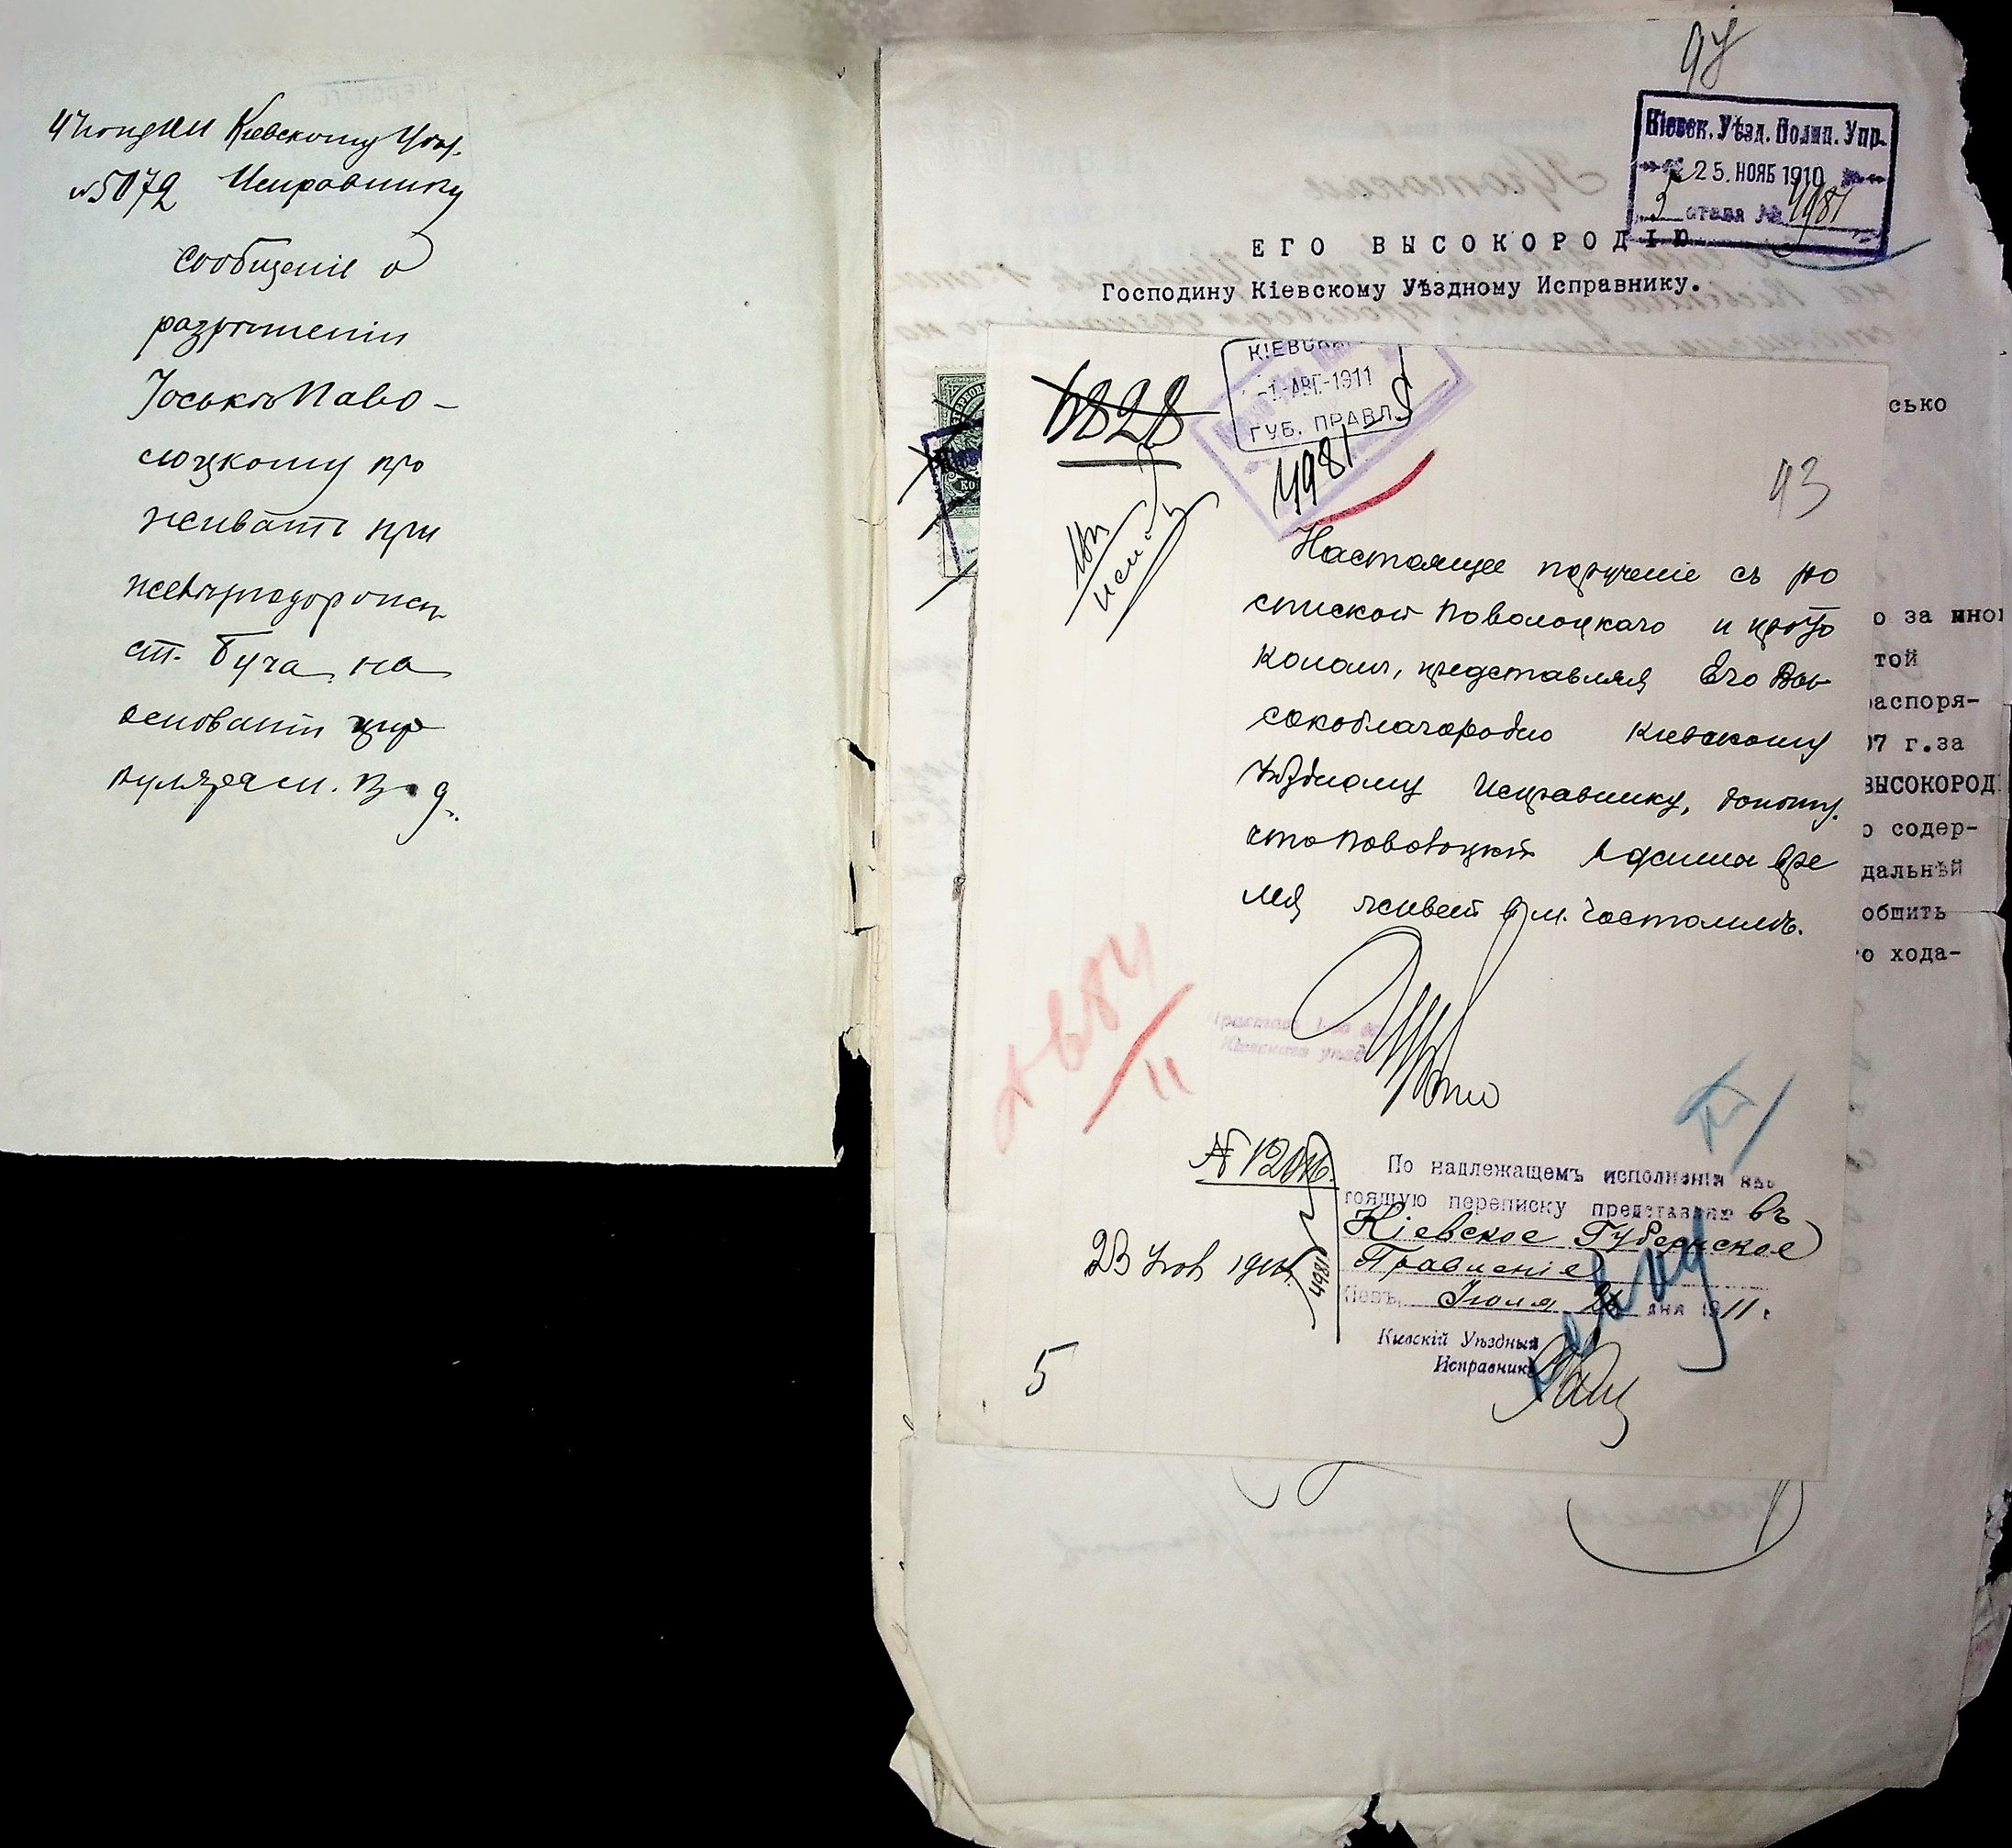 Кіевскому Уѣзд.
№ 5072 Исправнику
сообщеніе о
разрѣшеніи
Іоськѣ Паво-
лоцкому про
живать при
желѣзнодорожн
ст. Буча, на
основаніи цир
куляра м. В. д.
97
Кіевск. Уѣзд. Полиц. Упр.
25. НОЯБ 1910
2 стола № 4981
ЕГО ВЫСОКОРОДІЮ
Господину Кіевскому Уѣздному Исправнику.
сько
о за мной
той
аспоря-
07 г.за
ВЫСОКОРОД
о содер-
дальнѣй
общить
о хода-
4828
КІЕВСКОЕ
-1-АВГ-1911
ГУБ. ПРАВЛ.
4981
93
Настоящее порученіе съ ро
спиской Поволоцкаго и прото
коломъ, представляя Его Вы
сокоблагородію Кіевскому
Уѣздному Исправнику, доношу,
что Поволоцкій
мя живетъ въ м. Гостомлѣ.
11
№ 1206
23 1910
4981
По надлежащемъ исполненіи нас
тоящую переписку представляю въ
Кіевское Губернское
Правленіе
Кіевъ, Іюля 26 дня 1911 г
Кіевскій Уѣздный
Исправникъ
5